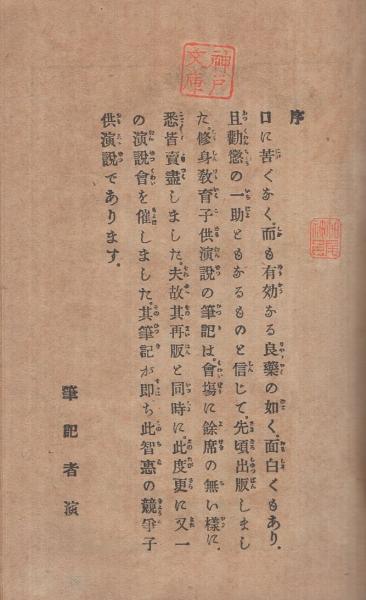 神戸
文庫
序
口に苦くなく、而も有効なる良藥の如く、面白くもあり、
且勸懲の一助ともなるものと信じて、先頃出版しまし
た修身敎育子供演說の筆記は、會塲に餘席の無い樣に、
悉皆賣盡しました。夫故其再版と同時に、此度更に又一
の演說會を催しました、其筆記が即ち此智惠の競爭子
供演說であります。
筆記者演